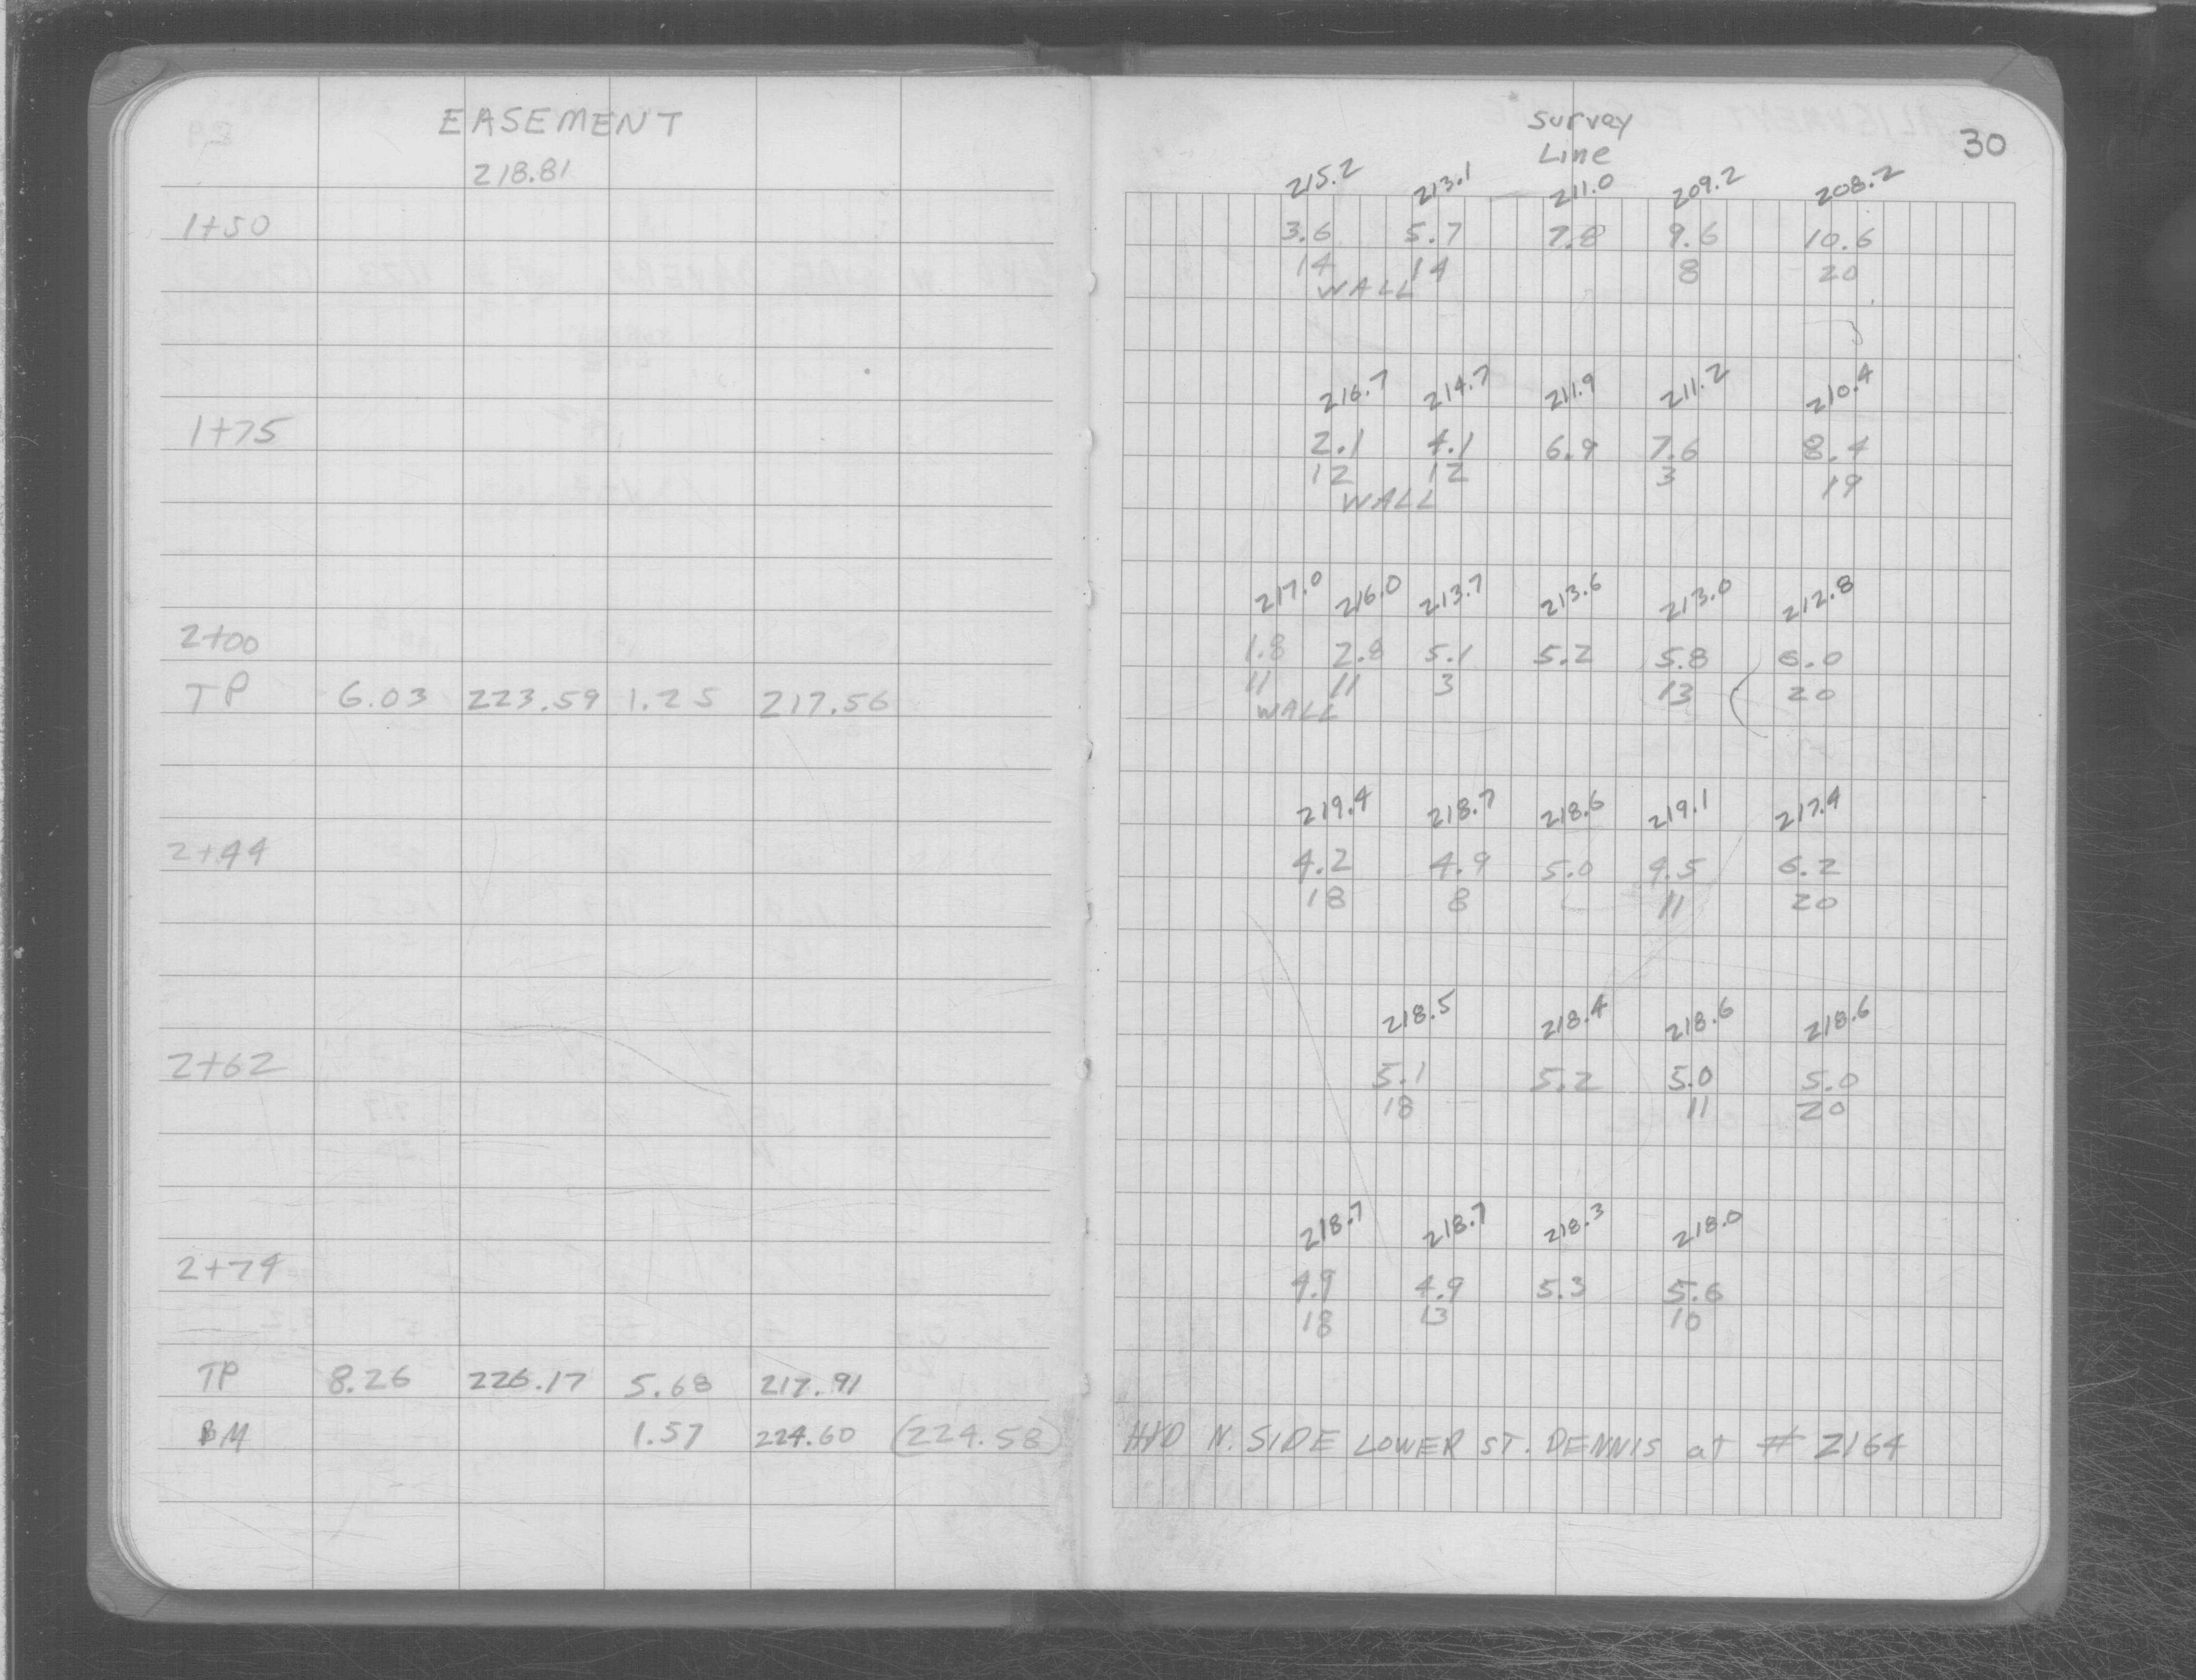 EASEMENT
218.81
1+50
1+75
2+00
TP 6.03 223.59 1.25 217.56
2+44
2+62
2+74
TP 8.26 226.17 5.68 217.91
BM 1.57 224.60 (224.58)
Survey
Line
30
215.2 213.1 211.0 209.2 208.2
3.6 5.7 7.8 9.6 10.6
14 14 8 20
WALL
216.7 214.7 211.9 211.2 210.4
2.1 4.1 6.9 7.6 8.4
12 12 3 19
WALL
217.0 216.0 213.7 213.6 213.0 212.8
1.8 2.8 5.1 5.2 5.8 6.0
11 11 3 13 20
WALL
219.4 218.7 218.6 219.1 217.4
4.2 4.9 5.0 4.5 6.2
18 8 11 20
218.5 218.4 218.6 218.6
5.1 5.2 5.0 5.0
18 11 20
218.7 218.7 218.3 218.0
4.9 4.9 5.3 5.6
18 13 10
HYD N. SIDE LOWER ST. DENNIS at # 2164